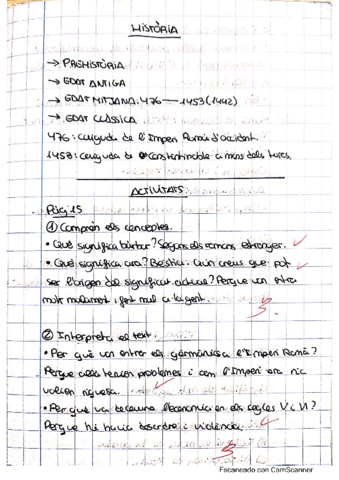 HISTÒRIA
→ PREHISTÒRIA
→ EDAT ANTIGA
→ EDAT MITJANA: 476 — 1453 (1492)
→ EDAT CLÀSSICA
476: caiguda de l'Imperi Romà d'occident.
1453: caiguda de Constantinoble a mans dels turcs.
ACTIVITATS
Pàg 15
① Comprèn els conceptes.
• Què significa bàrbar? Segons els romans estranger.
• Què significa ara? Bèstia. Quin creus que pot
ser l'origen del significat actual? Perquè van entra
molt malament i fent mal a la gent.
② Interpreta el text.
• Per què van entrar els germànics a l'Imperi Romà?
Perquè allà tenien problemes i com l'Imperi era ric
volien riquesa.
• Per què va decaure l'economia en els segles V i VI?
Perquè hi havia desordre i violència.
Escaneado con CamScanner